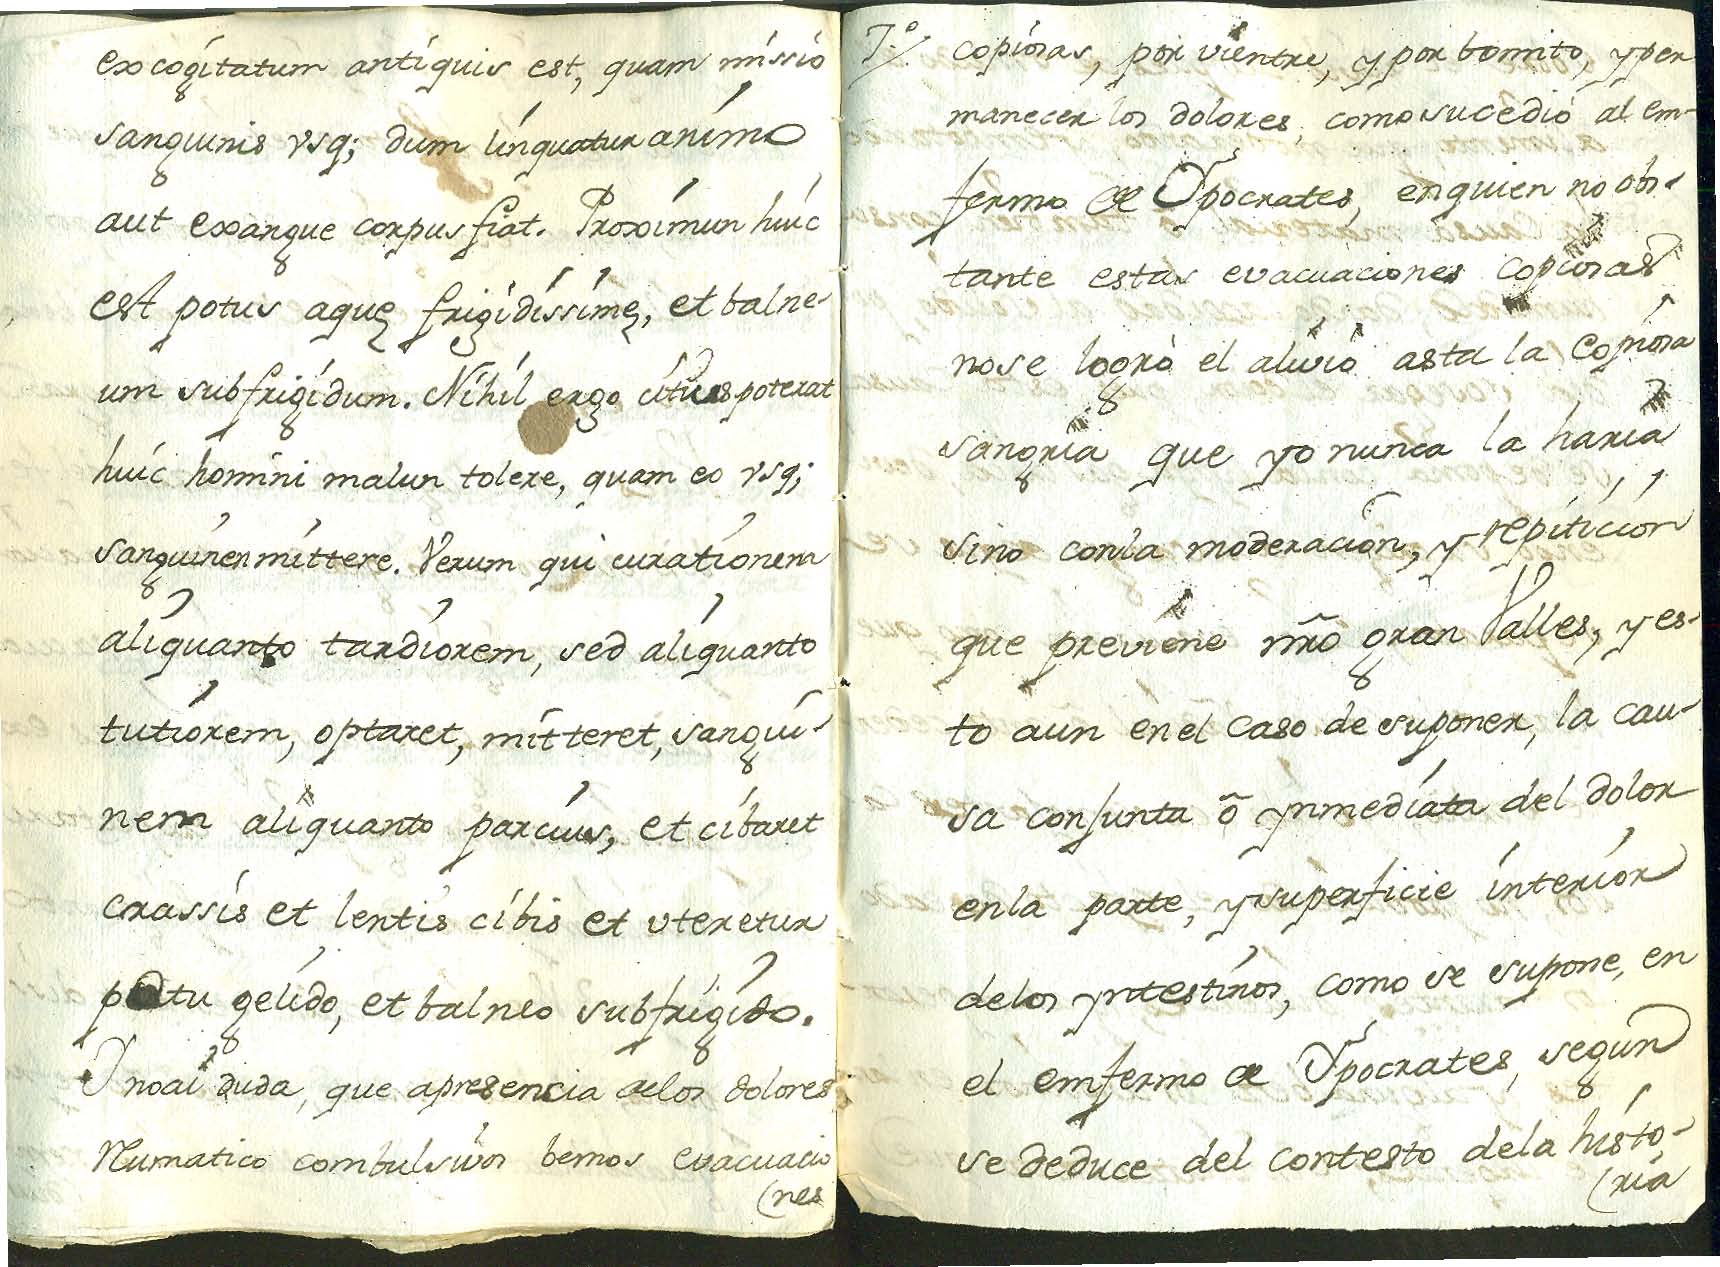 excogitatum antiquis est, quam missio
sanguinis vsq; dum linquatur animo
aut exangue corpus fiat. Proximun huic
est potus aquę frigidissimę, et balne-
um subfrigidum. Nihil ergo citius poterat
huic homini malun tolere, quam eo vsq;
sanguinen mittere. Verum qui curationem
aliquanto tardiorem, sed aliquanto
tutiorem, optaret, mitteret, sangui-
nem aliquanto parcius, et cibaret
crassis et lentis cibis et vteretur
potu gelido, et balneo subfrigido.
I noai duda, que apresencia delos dolores
Rumatico combulsivos bemos evacuacio
(nes
7.º/. copiosas, por vientre, y por bomito, y per
manecer los dolores, como sucedió al em-
fermo de Ypocrates, enquien no obs-
tante estas evacuaciones copiosas
nose logró el alivio asta la copiosa
sangria que yo nunca la haria
sino conla moderacion, y repiticion
que previene nr̃o gran Valles, y es-
to aun en el caso de suponer, la cau-
sa conjunta õ ynmediata del dolor
enla parte, y superficie interior
delos yntestinos, como se supone, en
el emfermo de Ypocrates, segun
se deduce del contesto dela histo-
(ria